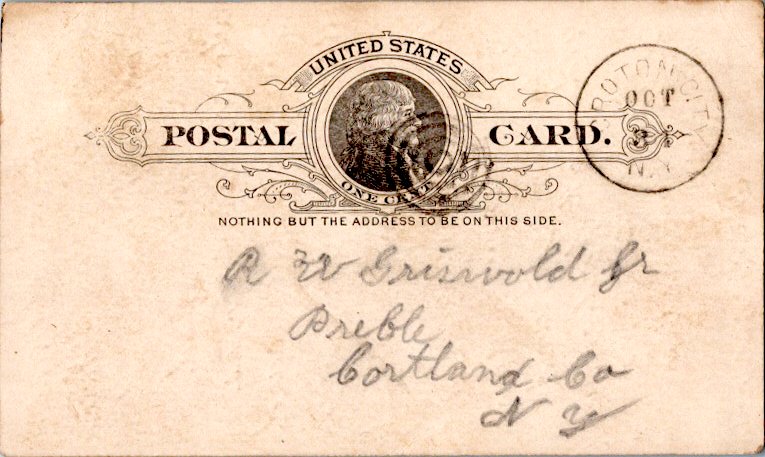 UNITED STATES
POSTAL CARD.
ONE CENT
NOTHING BUT THE ADDRESS TO BE ON THIS SIDE.
ROTON CITY
OCT
3
N.Y.
R W Griswold Jr
Preble
Cortland Co
N Y